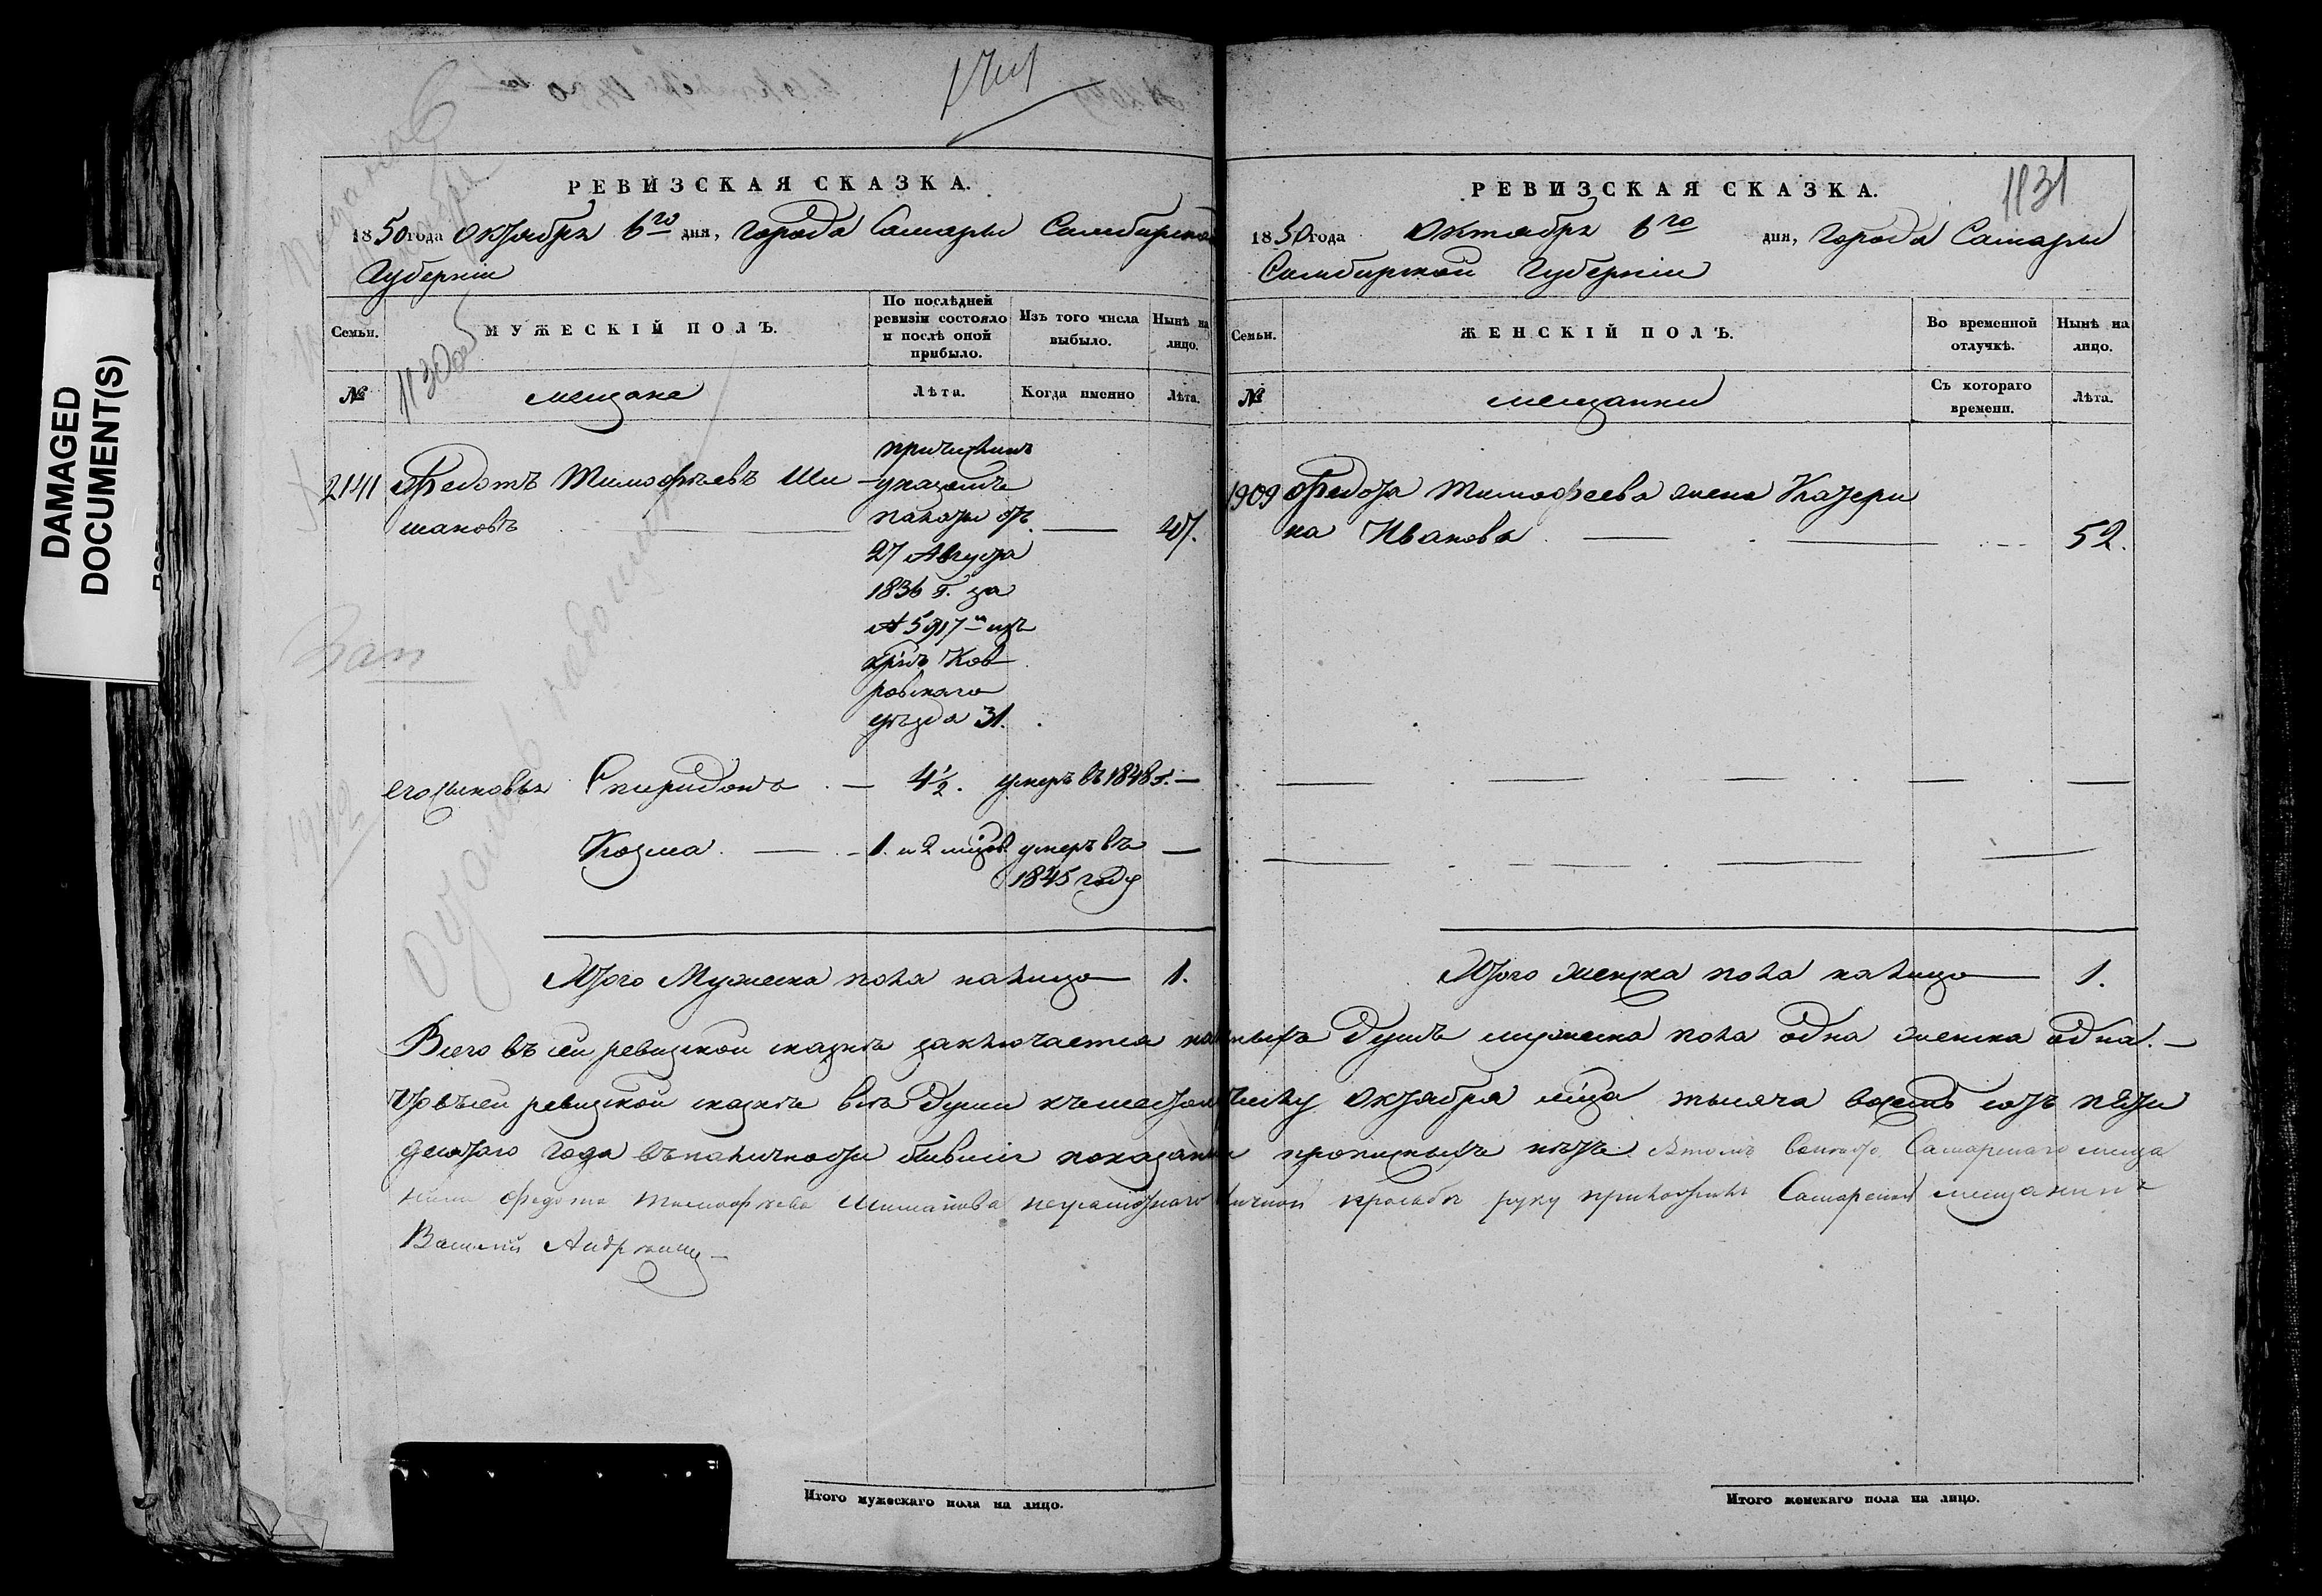 DAMAGED
DOCUMENT(S)
РЕВИЗСКАЯ СКАЗКА.
1850 года Октября 6го дня, Города Самары Симбирской
Губерніи
Семьи.
МУЖЕСКІЙ ПОЛЪ.
По послѣдней ревизіи состояло и послѣ оной прибыло.
Изъ того числа выбыло.
Нынѣ на лицо.
№
мещане
Лѣта.
Когда именно
Лѣта.
2141 Федотъ Тимофѣевъ Ши
шановъ 47.
причисленъ
указомъ
палаты отъ
27 Августа
1836 г. за
№ 5917 изъ
крнъ Ков
ровскаго
уѣзда 31.
его сыновья Спиридонъ — 4½. умеръ въ 1848 г. —
Козма. — 1. и 2 мцов умеръ въ —
1845 году
Итого Мужеска пола налицо 1.
1131
РЕВИЗСКАЯ СКАЗКА.
1850 года Октября 6го дня, Города Самары
Симбирской Губерніи
Семьи.
ЖЕНСКІЙ ПОЛЪ.
Во временной отлучкѣ.
Нынѣ на лицо.
№
мещанки
Съ котораго времени.
Лѣта.
1909 Федота Тимофеева жена Катери
на Иванова 52.
Итого женска пола налицо 1.
Всего въ сей ревизской сказкѣ заключается наличныхъ душъ мужеска пола одна женска одна. —
Что въ сей ревизской сказкѣ всѣ души къ шестому числу Октября мца тысяча восемь сотъ пяти
десятаго года въ наличности бывшіе показаны и прописныхъ нѣтъ. Въ томъ Самарскаго меща
нина Федота Тимофѣева Шишанова неграмотнаго личной прозьбѣ руку приложилъ Самарской мещанинъ
Василий
Итого мужескаго пола на лицо.
Итого женскаго пола на лицо.